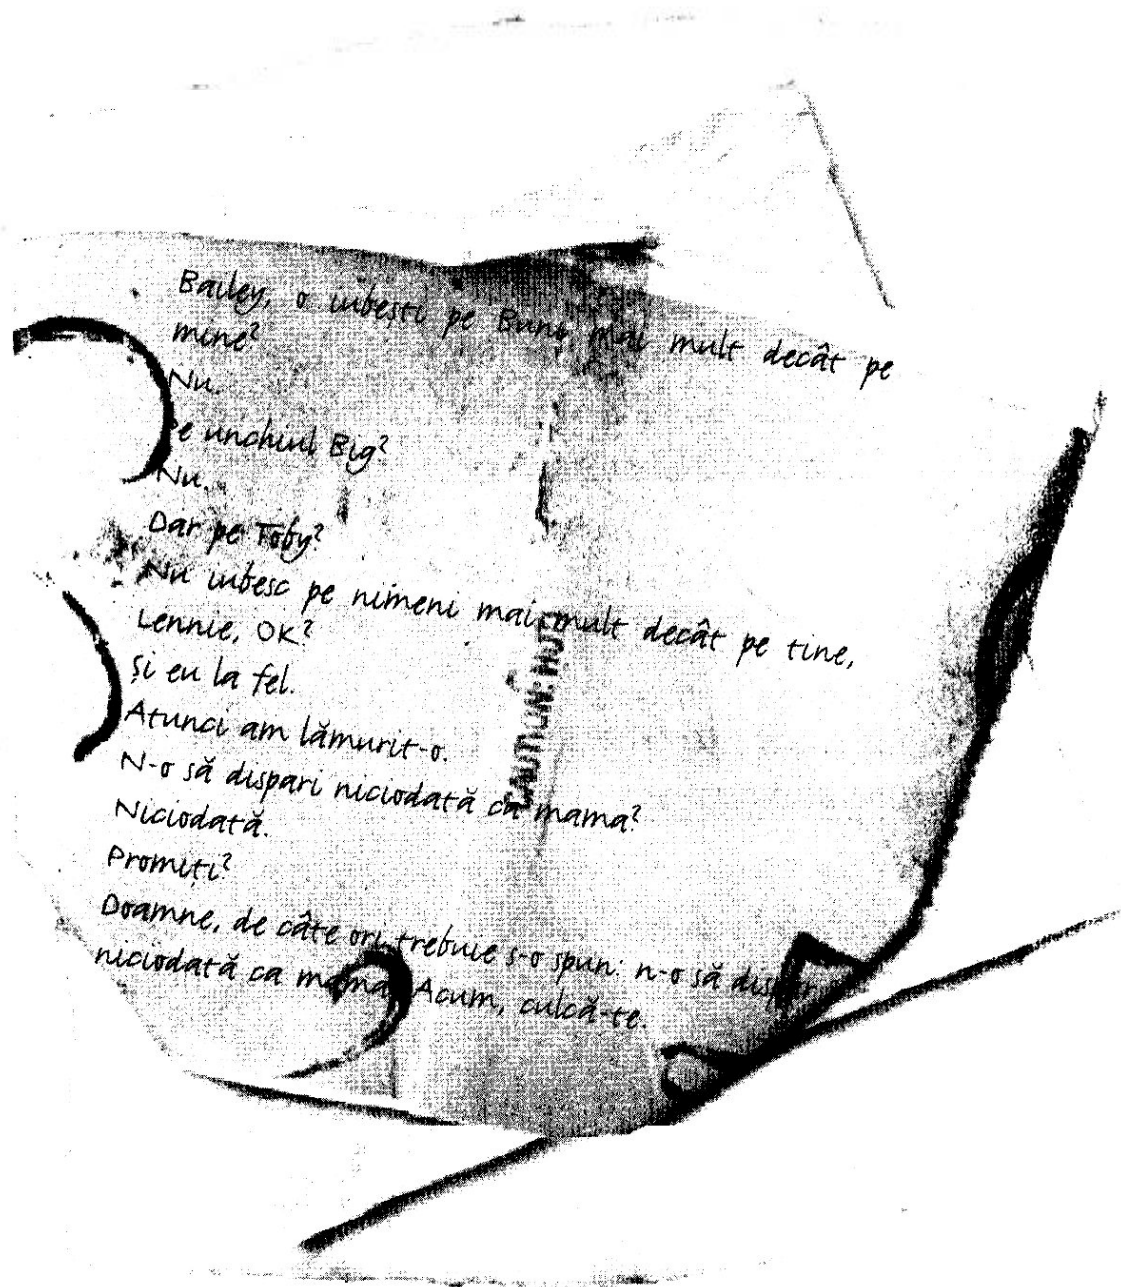 Bailey, o iubești pe Buni mai mult decât pe
mine?
Nu.
Pe unchiul Big?
Nu.
Dar pe Toby?
Nu iubesc pe nimeni mai mult decât pe tine,
Lennie, OK?
Și eu la fel.
Atunci am lămurit-o.
N-o să dispari niciodată ca mama?
Niciodată.
Promiți?
Doamne, de câte ori trebuie s-o spun: n-o să dispar
niciodată ca mama. Acum, culcă-te.
CAUTION: HOT